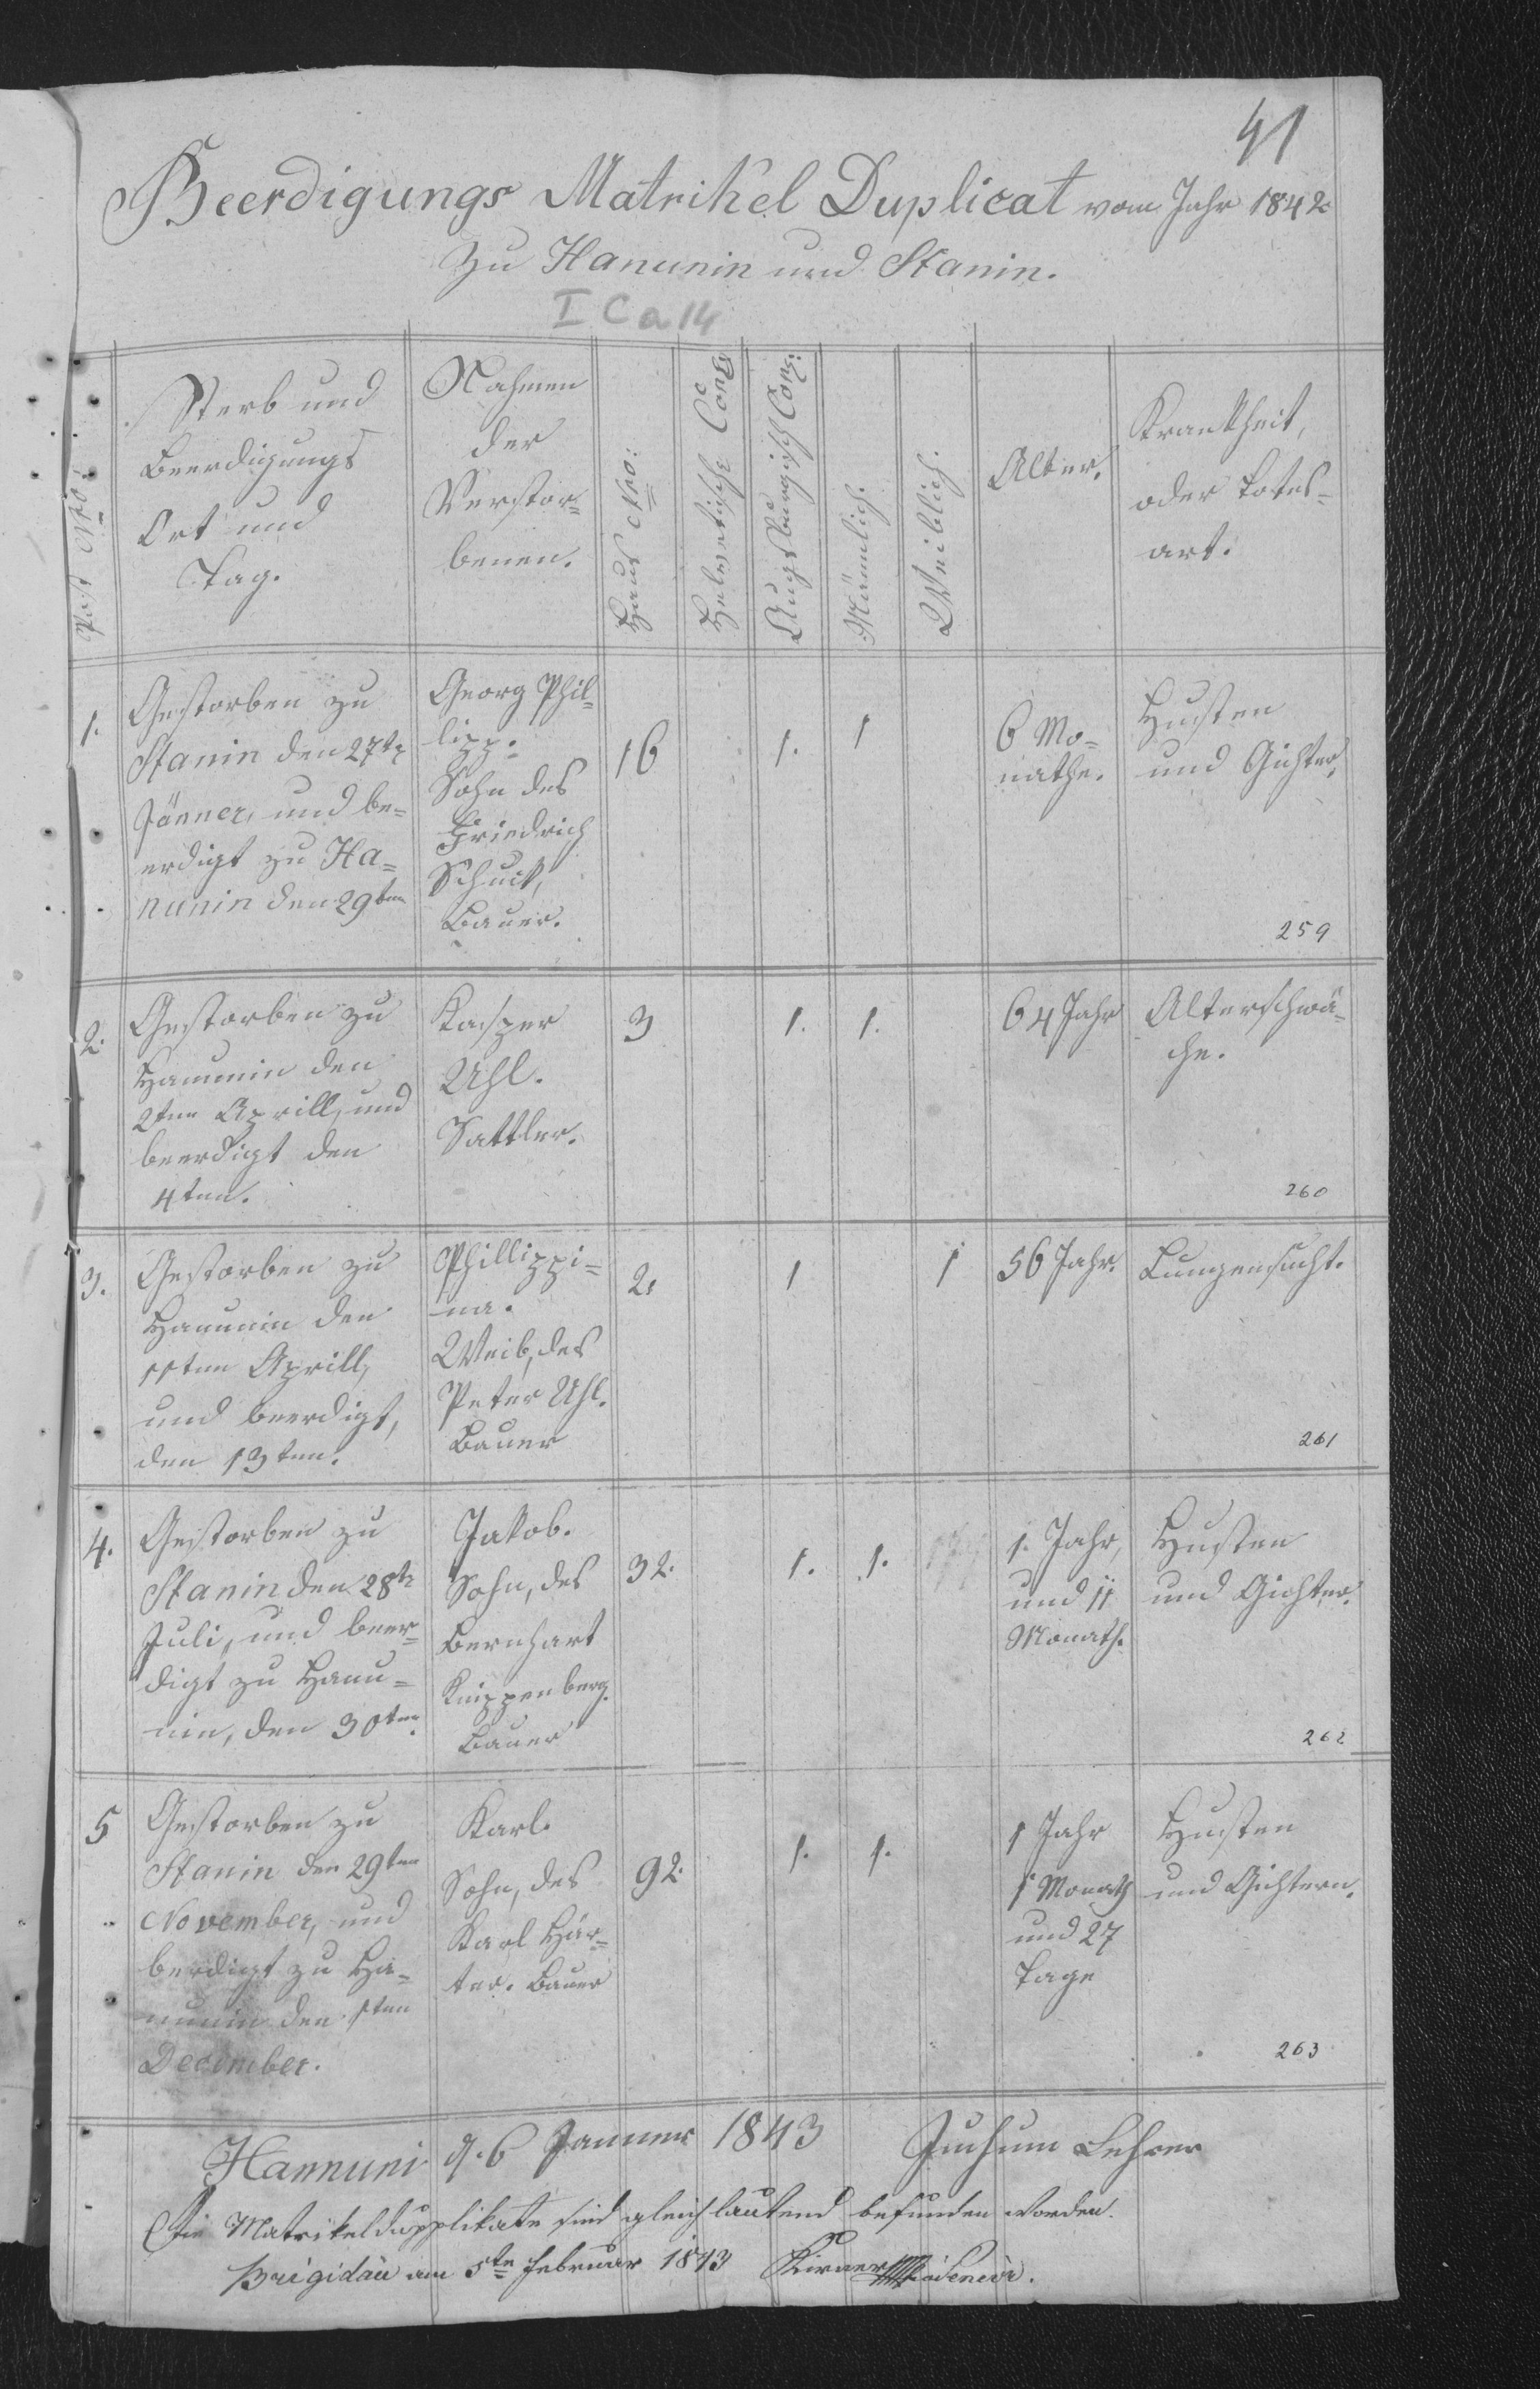 41
Beerdigungs Matrikel Duplicat vom Jahr 1842
zu Hanunin und Stanin.
I C a 14
Post Nro:
Sterb und
Beerdigungs
Ort und
Tag.
Nahmen
der
Verstor=
benen.
Haus Nro:
Helvetische Conf:
Augsburgisch Conf:
Männlich.
Weiblich.
Alter.
Krankheit,
oder Todes=
art.
1.
Gestorben zu
Stanin den 27te
Jänner, und be=
erdigt zu Ha=
nunin den 29ten
Georg Phil=
lipp.
Sohn des
Friedrich
Bauer.
16
1.
1
6 Mo=
nathe.
Husten
und Gichter.
259
2.
Gestorben zu
Hanunin den
2ten Aprill, und
beerdigt den
4ten.
Kasper
Uhl.
Sattler.
3
1.
1.
64 Jahr
Alterschwä=
che.
260
3.
Gestorben zu
Hanunin den
11ten Aprill,
und beerdigt,
den 13ten.
Phillippi=
na.
Weib, des
Peter Uhl.
Bauer
2.
1
1
56 Jahr.
Lungensucht.
261
4.
Gestorben zu
Stanin den 28te
Juli, und beer=
digt zu Hanu=
nin, den 30ten.
Jakob.
Sohn, des
Bernhart
Knippenberg.
Bauer
32.
1.
1.
1. Jahr,
und 11
Monath.
Husten
und Gichter.
262
5
Gestorben zu
Stanin den 29ten
November, und
berdigt zu Ha=
nunin den 1ten
December.
Karl.
Sohn, des
Karl Här=
ter. Bauer
92.
1.
1.
1 Jahr
1 Monath
und 27
Tage
Husten
und Gichtern.
263
Hannuni d. 6 Januer 1843 Juchum Lehrer
Die Matrikelduplikate sind gleichlautend befunden worden.
Brigidau am 5te Februar 1843